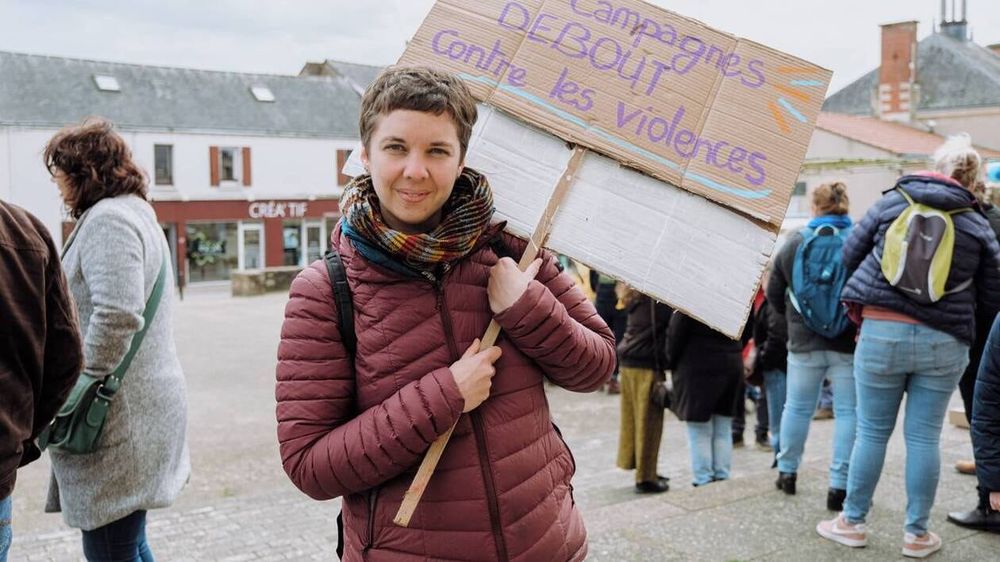 Campagnes
DEBOUT
Contre les violences
CRÉA'TIF